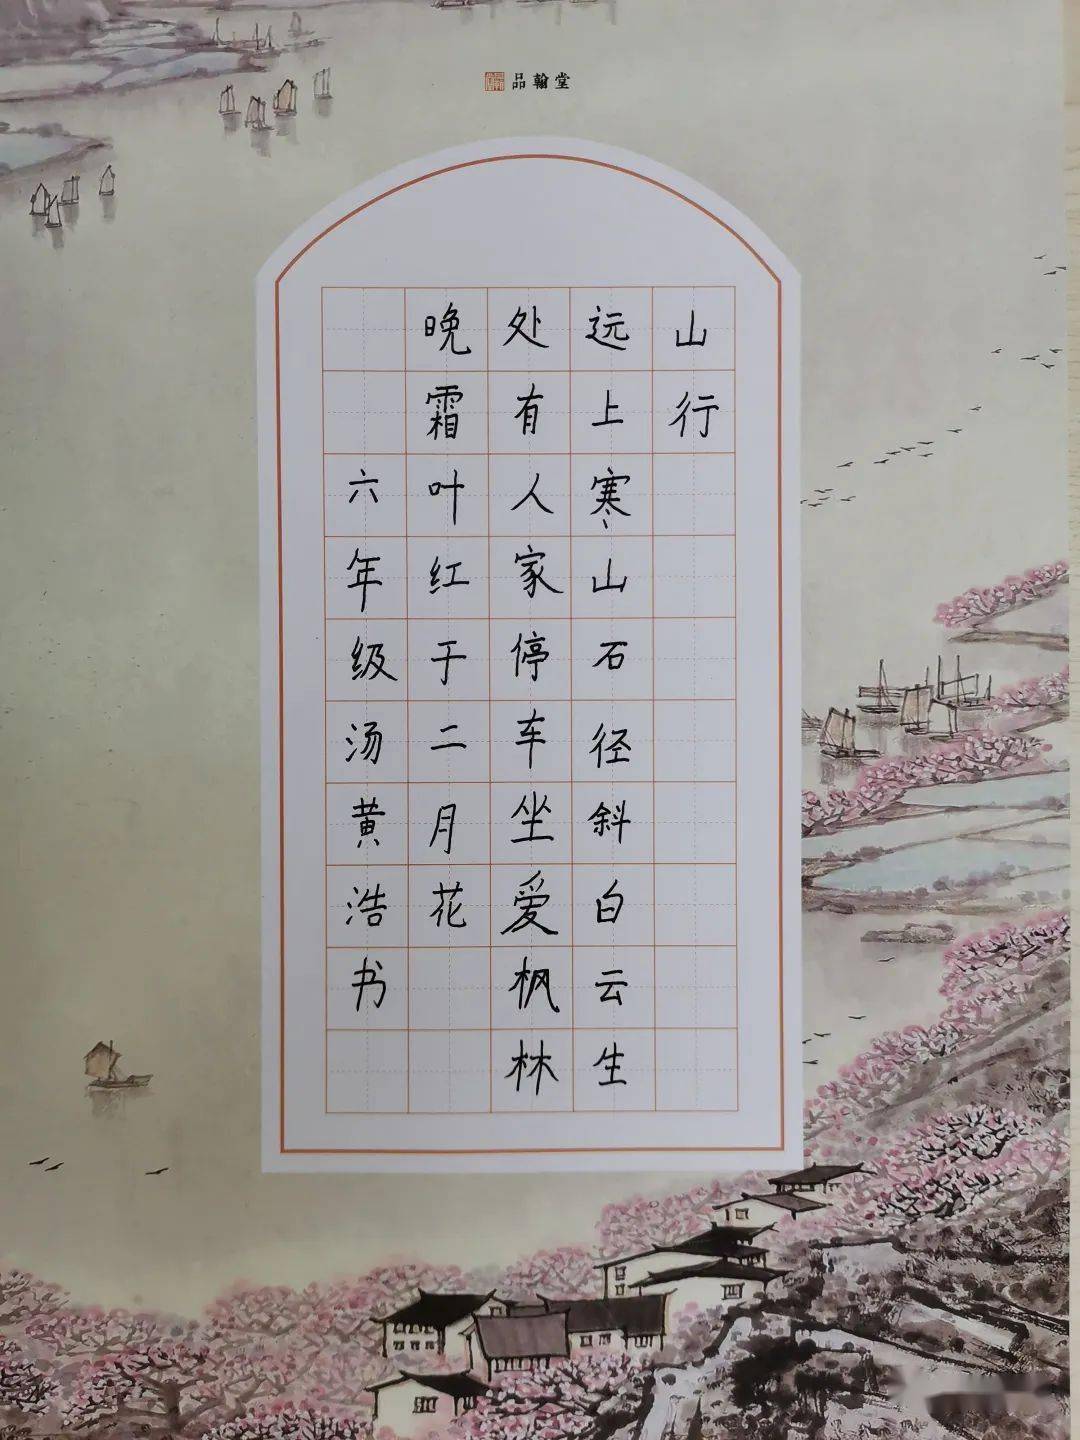 品翰堂
山行
远上寒山石径斜白云生
处有人家停车坐爱枫林
晚霜叶红于二月花
六年级汤黄浩书